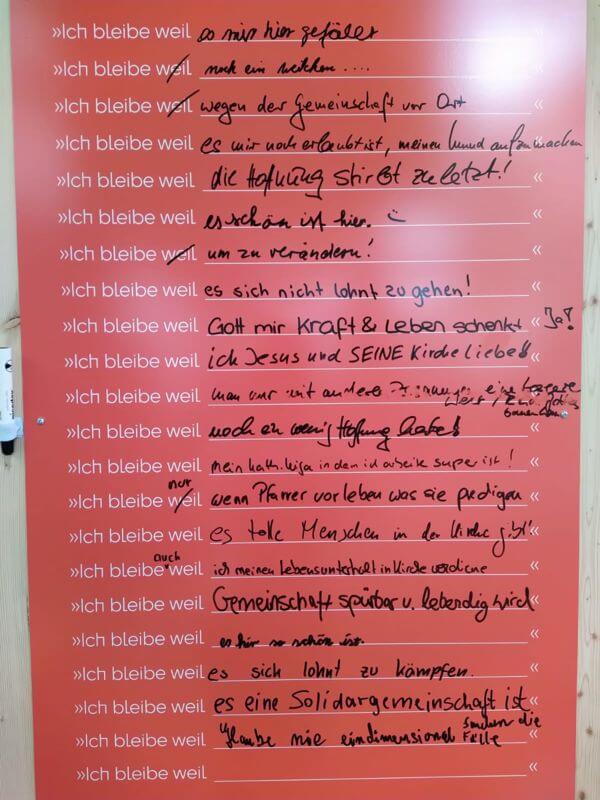 »Ich bleibe weil es mir hier gefällt «
»Ich bleibe weil noch ein weilchen .... «
»Ich bleibe weil wegen der Gemeinschaft vor Ort «
»Ich bleibe weil es mir noch erlaubt ist, meinen Mund aufzumachen «
»Ich bleibe weil die Hoffnung stirbt zuletzt! «
»Ich bleibe weil es schön ist hier. «
»Ich bleibe weil um zu verändern! «
»Ich bleibe weil es sich nicht lohnt zu gehen! «
»Ich bleibe weil Gott mir Kraft & Leben schenkt « Ja!
»Ich bleibe weil ich Jesus und SEINE Kirche liebe! «
»Ich bleibe weil man nur mit anderen eine bessere «
Welt
»Ich bleibe weil noch ein wenig Hoffnung habe! «
»Ich bleibe weil mein kath. in dem ich arbeite super ist! «
nur
»Ich bleibe weil wenn Pfarrer vorleben was sie predigen «
»Ich bleibe weil es tolle Menschen in der Kirche gibt! «
auch
»Ich bleibe weil ich meinen Lebensunterhalt in Kirche verdiene «
»Ich bleibe weil Gemeinschaft spürbar u. lebendig wird «
»Ich bleibe weil es hier so schön ist. «
»Ich bleibe weil es sich lohnt zu kämpfen. «
»Ich bleibe weil es eine Solidargemeinschaft ist. «
»Ich bleibe weil Glaube nie eindimensional sondern die Fülle «
»Ich bleibe weil «